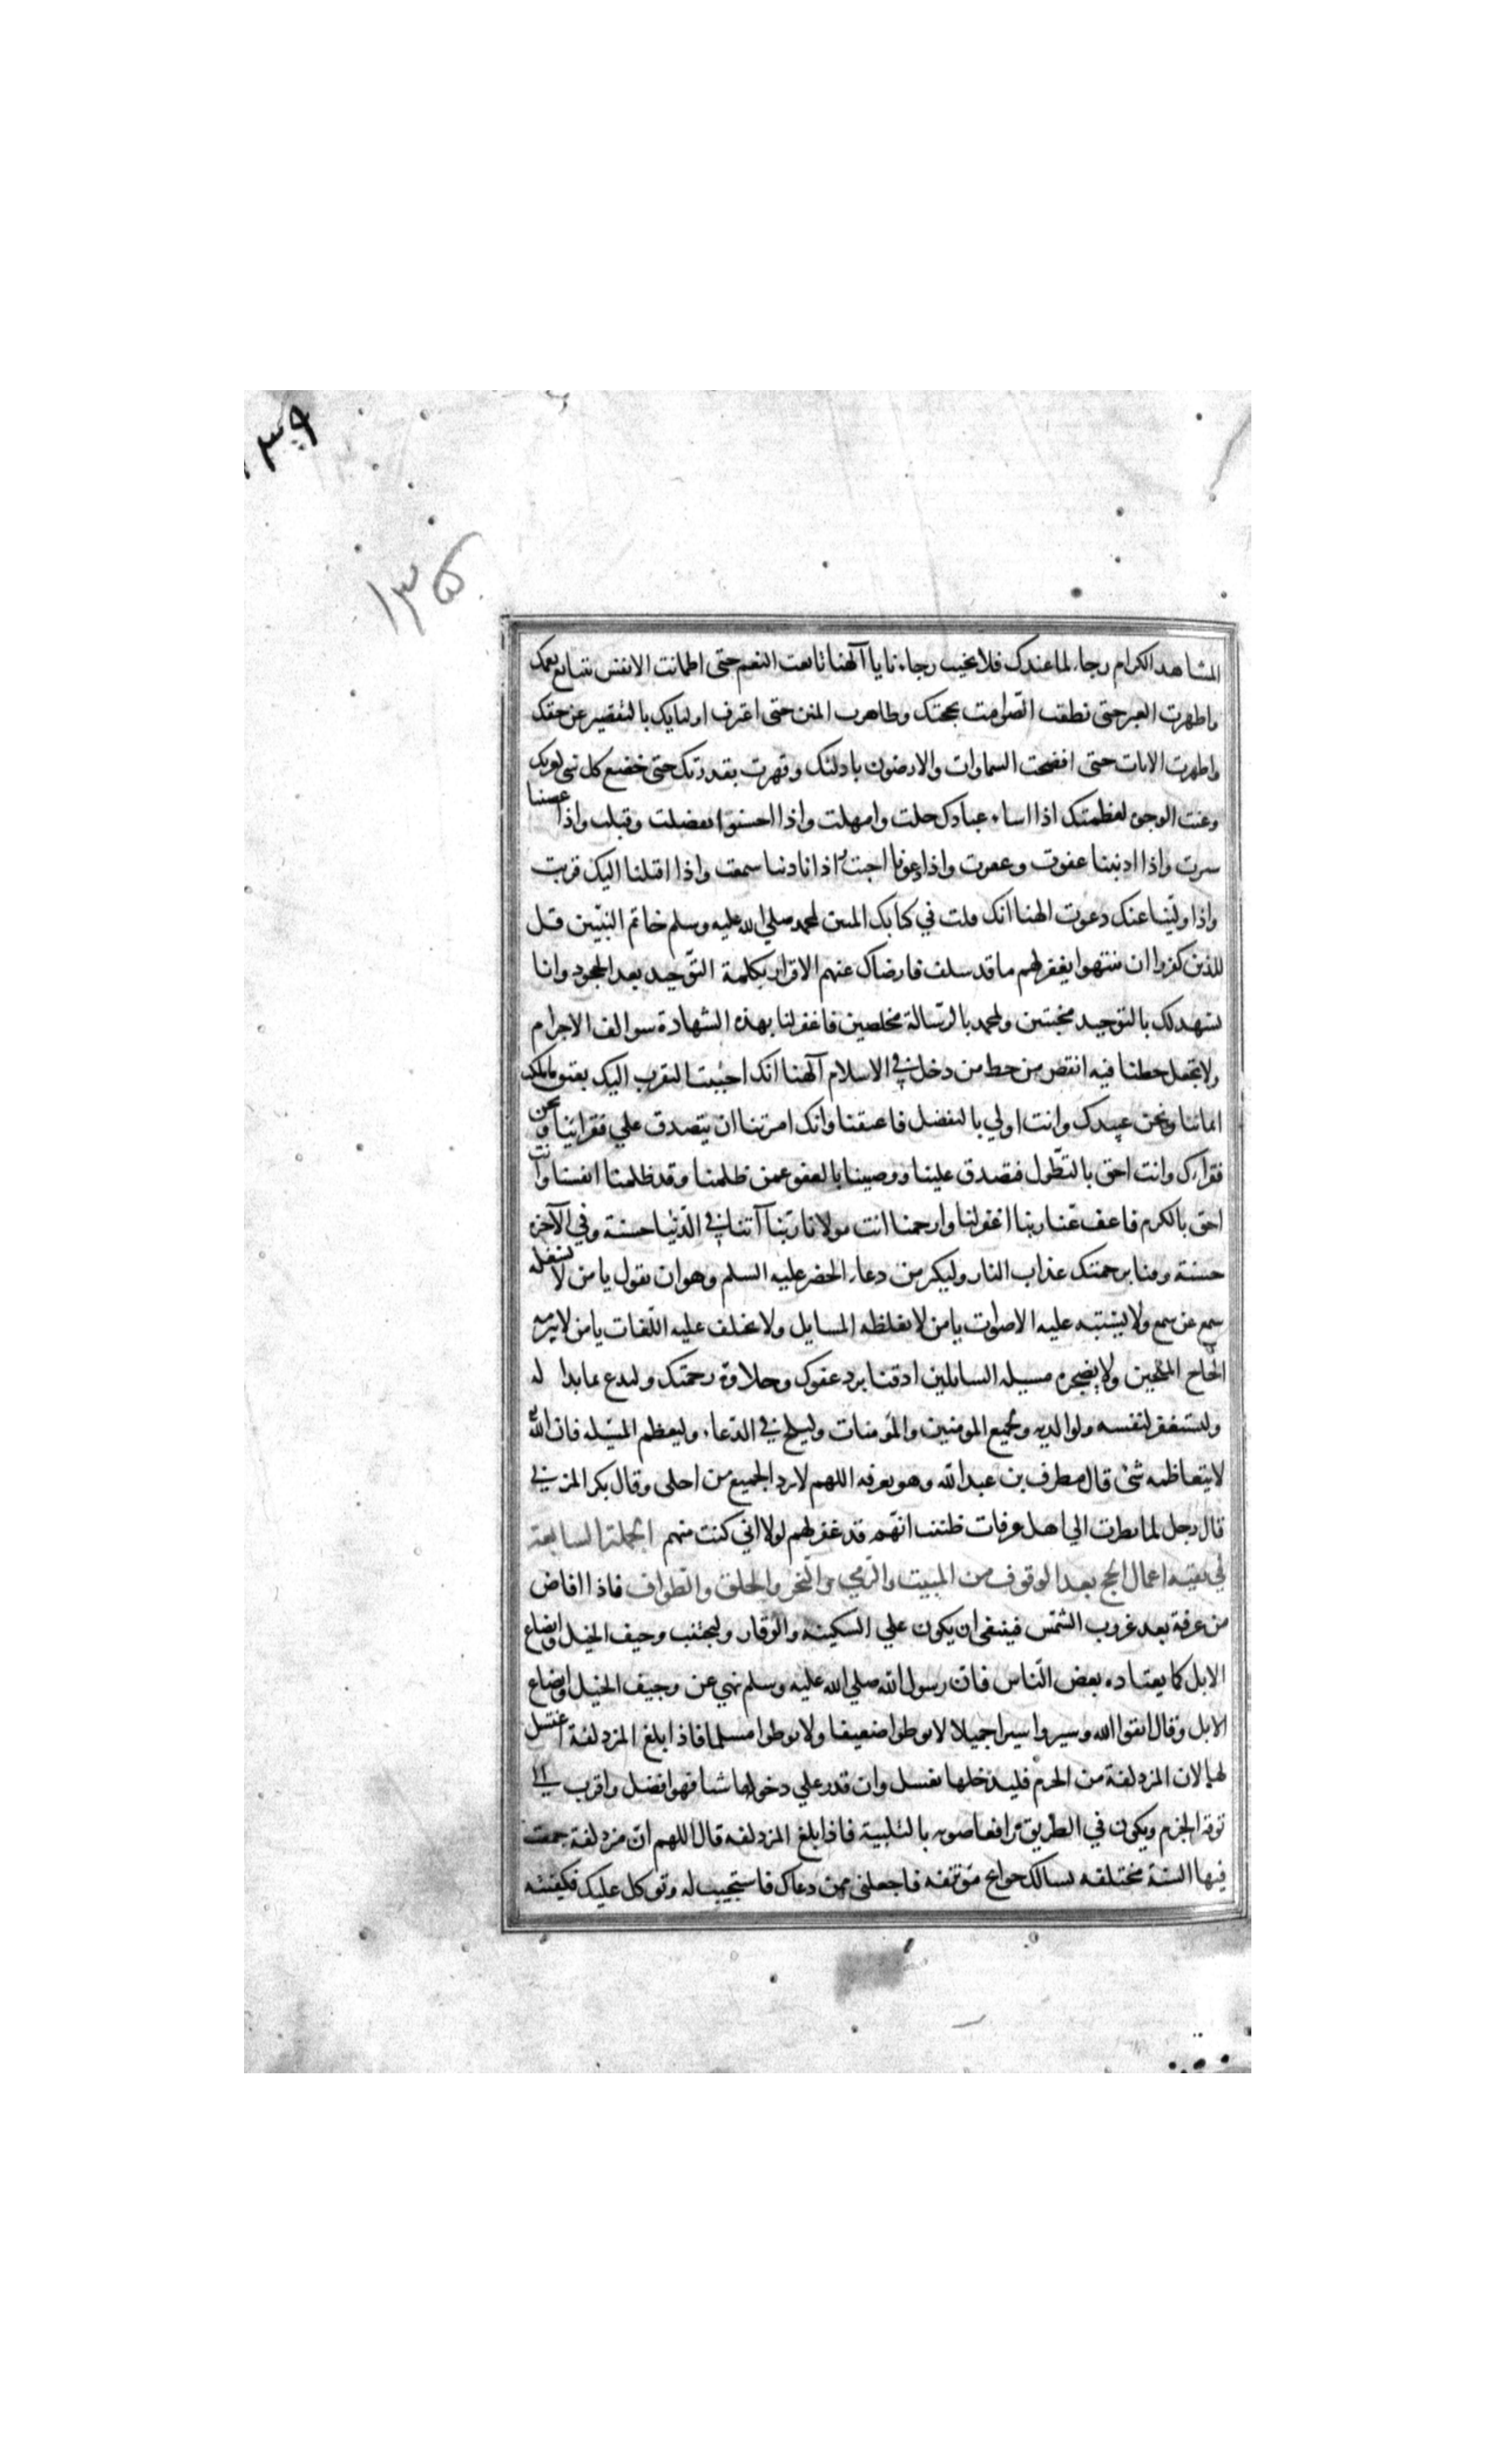 ١٣٩
١٣٥
المشاهد الكرام رجاء لما عندك فلا تخيب رجاءنا يا آلهنا تابعت النعم حتى اطمانت الانفس بتتابع نعمك
واظهرت العبر حتى نطقت الصوامت بحجتك وظاهرت المنن حتى اعترف اولياؤك بالتقصير عن حقك
واظهرت الايات حتى افصحت السماوات والارضون بادلتك وقهرت بقدرتك حتى خضع كل شي لعزتك
وعنت الوجوه لعظمتك اذا اساء عبادك حلمت وامهلت واذا احسنوا تفضلت وقبلت واذا عصينا
سترت واذا اذنبنا عفوت وغفرت واذا دعونا اجبت واذا نادينا سمعت واذا اقبلنا اليك قربت
واذا ولينا عنك دعوت الهنا انك قلت في كتابك المبين لمحمد صلي الله عليه وسلم خاتم النبيين قل
للذين كفروا ان ينتهوا يغفر لهم ما قد سلف فارضاك عنهم الاقرار بكلمة التوحيد بعد الجحود وانا
نشهد لك بالتوحيد مخبتين ولمحمد بالرسالة مخلصين فاغفر لنا بهذه الشهادة سوالف الاجرام
ولا تجعل حظنا فيه انقص من حظ من دخل في الاسلام آلهنا انك احببت التقرب اليك بعتق ما ملكت
ايماننا ونحن عبيدك وانت اولي بالتفضل فاعتقنا وانك امرتنا ان يتصدق علي فقرائنا ونحن
فقراءك وانت احق بالتطول فتصدق علينا ووصيتنا بالعفو عمن ظلمنا وقد ظلمنا انفسنا وانت
احق بالكرم فاعف عنا ربنا اغفر لنا وارحمنا انت مولانا ربنا آتنا في الدنيا حسنة وفي الآخرة
حسنة وقنا برحمتك عذاب النار وليكثر من دعاء الخضر عليه السلم وهو ان يقول يا من لا يشغله
سمع عن سمع ولا يشتبه عليه الاصوات يا من لا يغلظه المسايل ولا تختلف عليه اللغات يا من لا يبرمه
الحاح الملحين ولا يضجره مسيله السايلين اذقنا برد عفوك وحلاوة رحمتك وليدع بما بدا له
وليستغفر لنفسه ولوالديه ولجميع المومنين والمومنات وليلح في الدعاء وليعظم المسئله فان الله
لا يتعاظمه شئ قال مطرف بن عبدالله وهو بعرفه اللهم لا ترد الجميع من اجلي وقال بكر المزني
قال رجل لما نظرت الي اهل عرفات ظننت انهم قد غفر لهم لولا اني كنت منهم الجملة السابعة
في بقية اعمال الحج بعد الوقوف من المبيت والرمي والنحر والحلق والطواف فاذا افاض
من عرفة بعد غروب الشمس فينبغي ان يكون علي السكينة والوقار وليجتنب وجيف الخيل وايضاع
الابل كما يعتاده بعض الناس فان رسول الله صلي الله عليه وسلم نهي عن وجيف الخيل وايضاع
الابل وقال اتقوا الله وسيروا سيرا جميلا لا توطوا ضعيفا ولا توطوا مسلما فاذا بلغ المزدلفة اغتسل
لها لان المزدلفة من الحرم فليدخلها بغسل وان قدر علي دخولها ماشيا فهو افضل واقرب الي
توقير الحرم ويكون في الطريق رافعا صوته بالتلبية فاذا بلغ المزدلفه قال اللهم ان مزدلفة جمعت
فيها السنة مختلفه نسالك حوائج مؤتنفه فاجعلني ممن دعاك فاستجيب له وتوكل عليك فكفيته